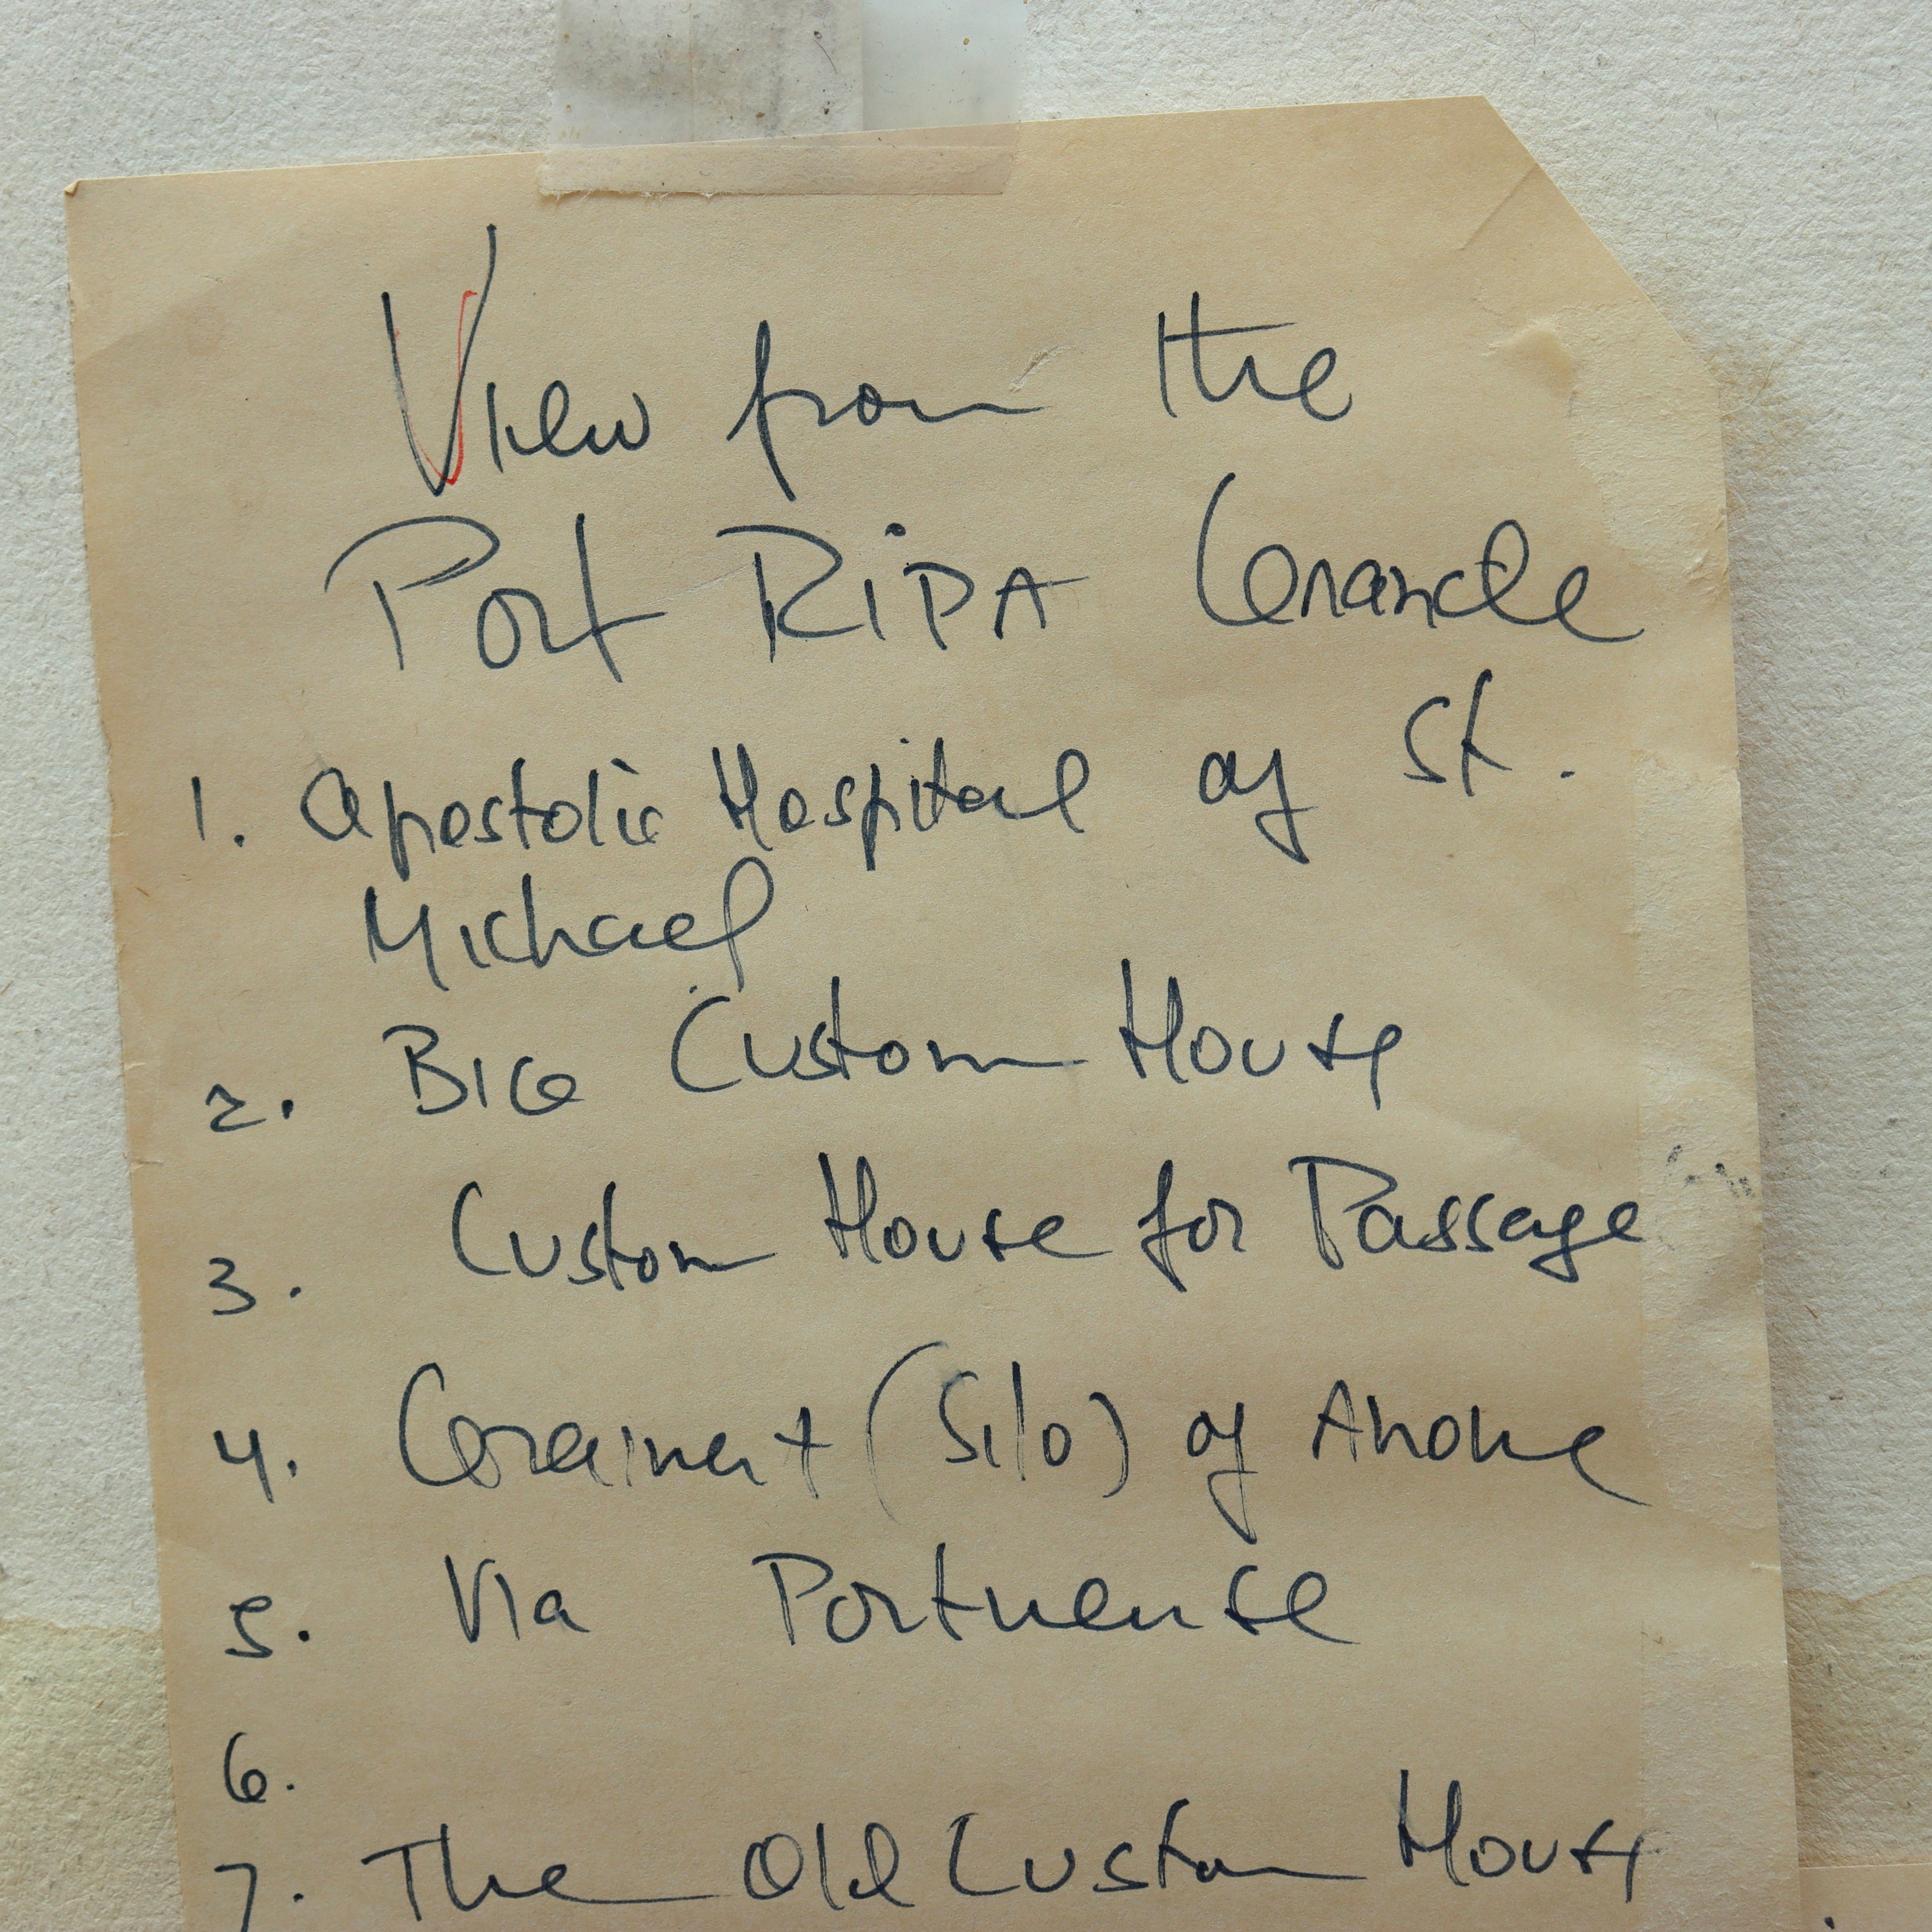 View from the
Port RiPA Grande
1. Apostolic Hospital of St.
Michael
2. BIG Custom House
3. Custom House for Passage
4. (Silo) of
5. Via Portuense
6.
7. The Old Custom House